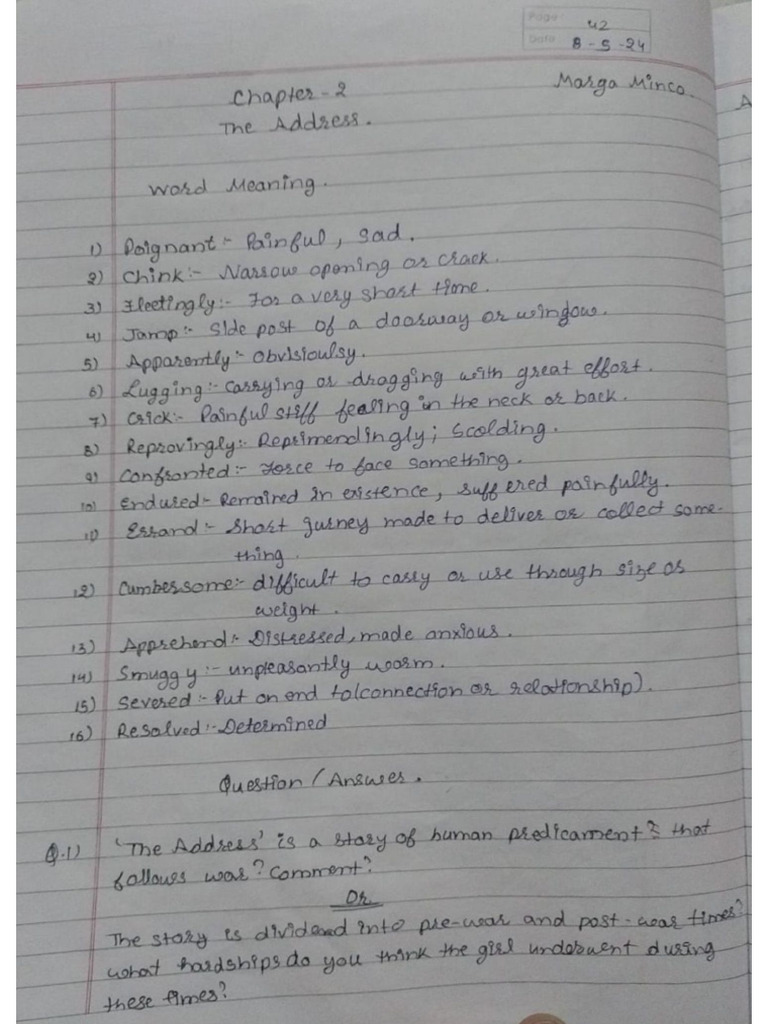 Page: 42
Date 8-5-24
Chapter-2
Marga Minco.
The Address.
A
Word Meaning.
1) Poignant:- Painful, Sad.
2) Chink:- Narrow opening or crack.
3) Fleetingly:- For a very short time.
4) Jamp:- Side post of a doorway or window.
5) Apparently:- Obvisioulsy.
6) Lugging:- Carrying or dragging with great effort.
7) Crick:- Painful stiff fealing in the neck or back.
8) Reprovingly:- Reprimendingly; Scolding.
9) Confronted:- Force to face something.
10) Endured- Remained in existence, suffered painfully.
11) Errand:- Short jurney made to deliver or collect some-
thing.
12) Cumbersome:- difficult to carry or use through size or
weight.
13) Apprehend:- Distressed, made anxious.
14) Smuggy:- unpleasantly worm.
15) Severed:- Put an end to(connection or relationship).
16) Resolved:- Determined
Question/Answer.
Q.1) 'The Address' is a story of human predicament that
follows war? Comment?
Or
The story is divided into pre-war and post-war times?
what hardships do you think the girl underwent during
these times?